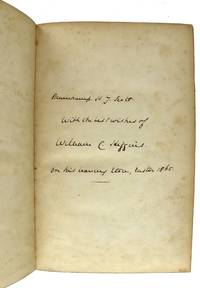 Beauchamp H. J. Scott
With the best wishes of
William C Higgins
On his leaving Eton, Easter 1865.